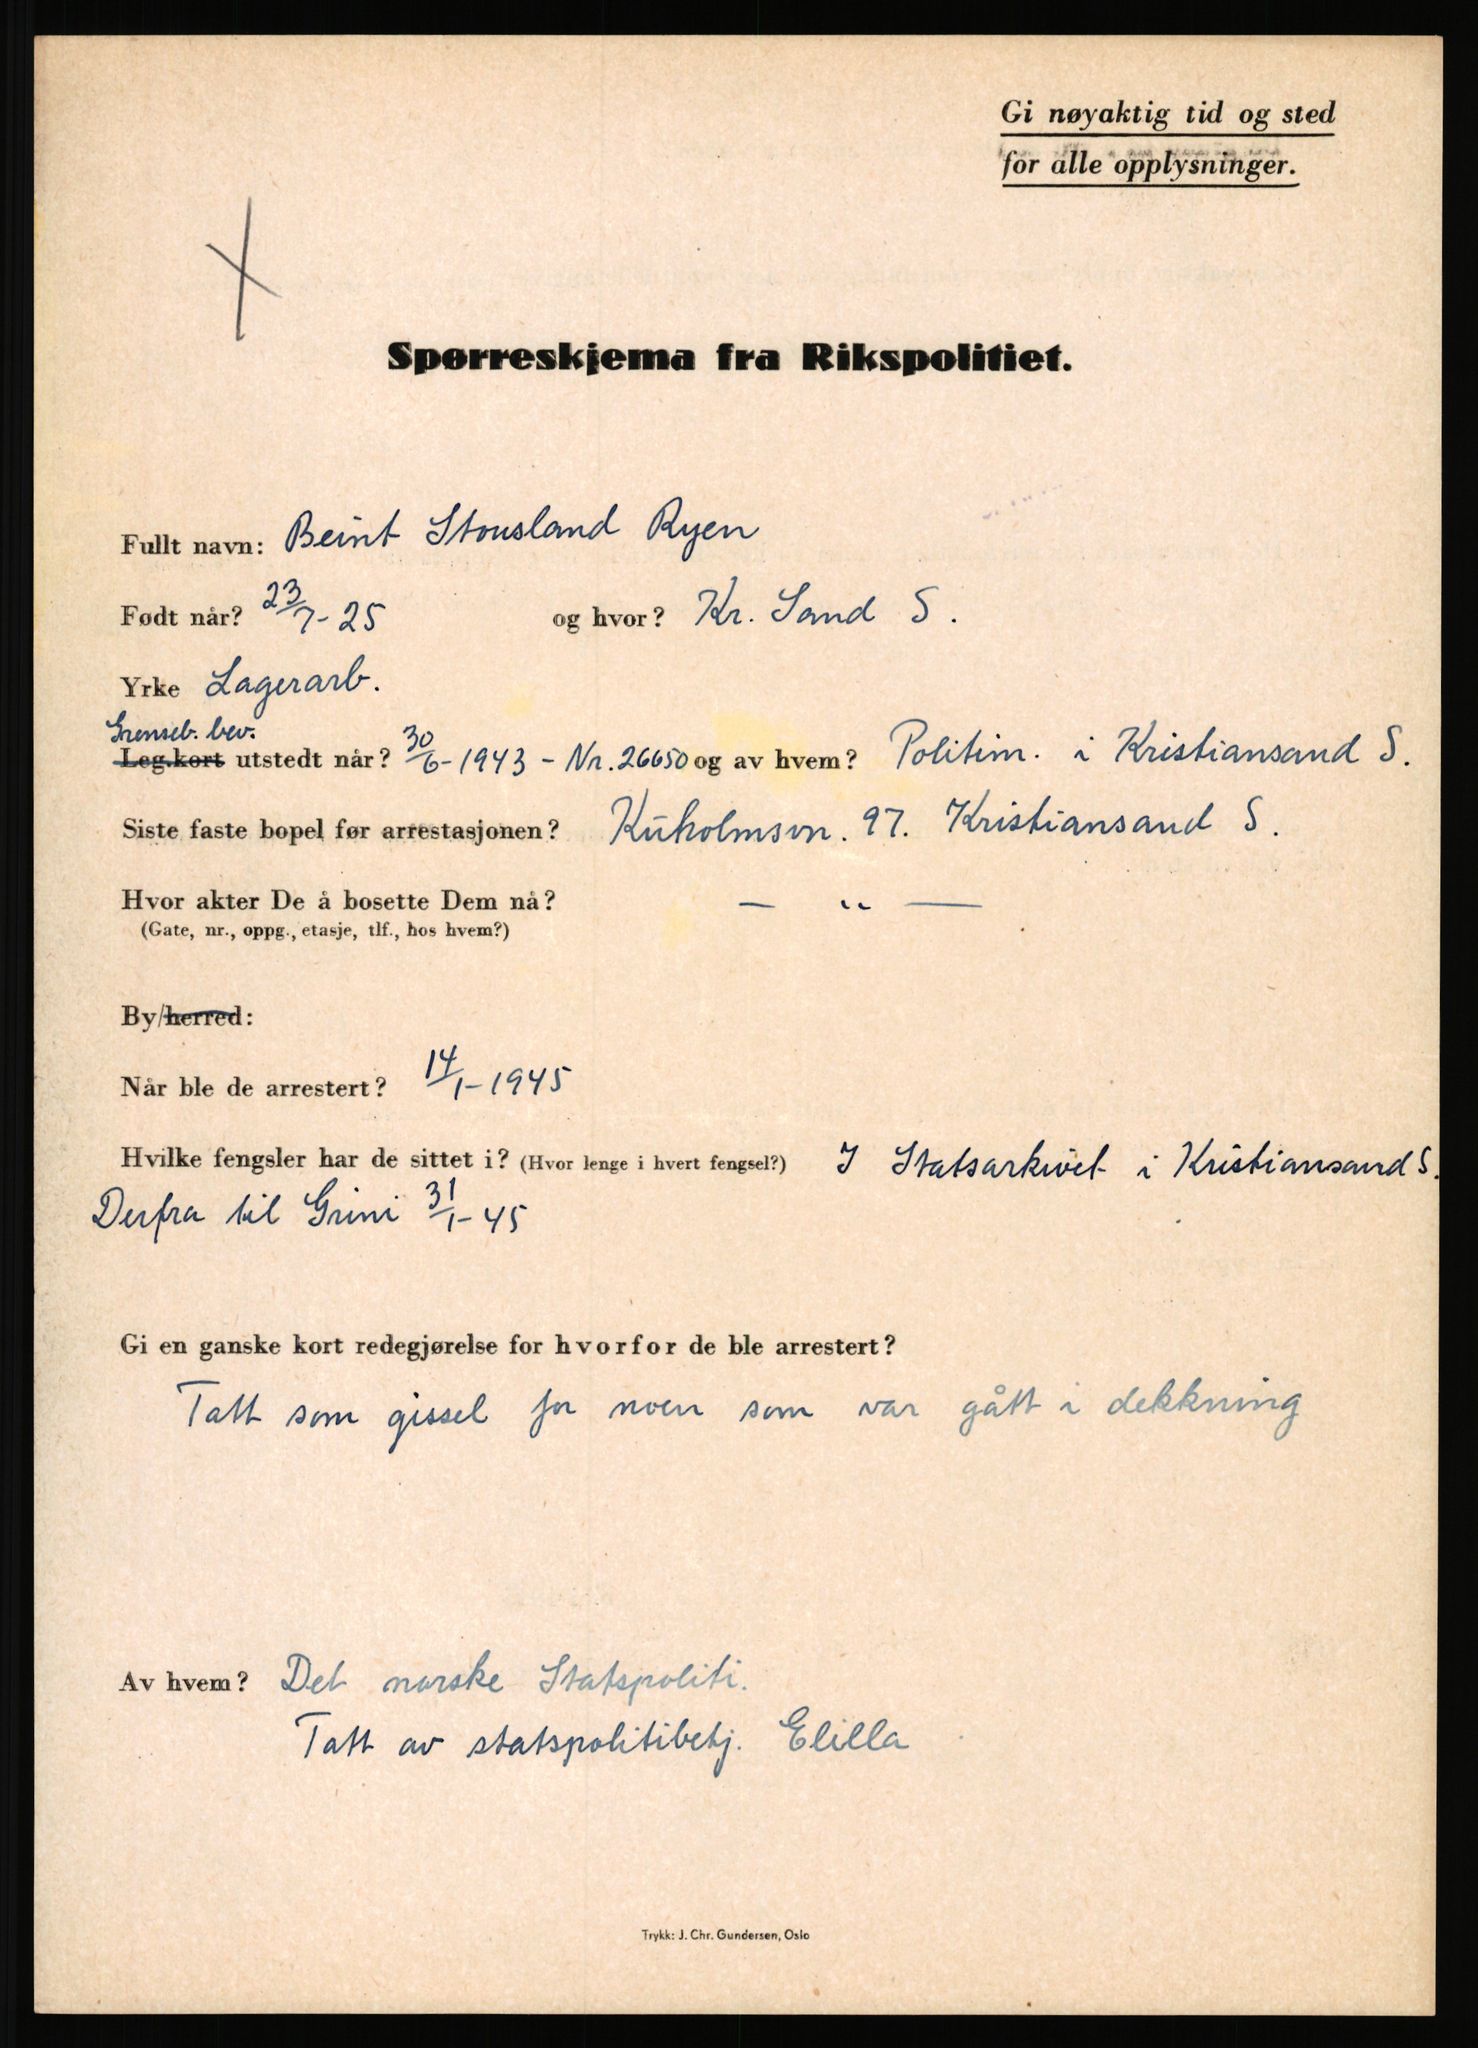 Gi nøyaktig tid og sted
for alle opplysninger.
Spørreskjema fra Rikspolitiet.
Fullt navn: Beint Stousland Ryen
Født når? 23/7-25 og hvor? Kr. Sand S.
Yrke Lagerarb.
Grenseb. bev.
Leg.kort utstedt når? 30/6-1943 - Nr. 26650 og av hvem? Politim. i Kristiansand S.
Siste faste bopel før arrestasjonen? Kuholmsvn. 97. Kristiansand S.
Hvor akter De å bosette Dem nå? — „ —
(Gate, nr., oppg., etasje, tlf., hos hvem?)
By/herred:
Når ble de arrestert? 14/1-1945
Hvilke fengsler har de sittet i? (Hvor lenge i hvert fengsel?) I Statsarkivet i Kristiansand S.
Derfra til Grini 31/1-45
Gi en ganske kort redegjørelse for hvorfor de ble arrestert?
Tatt som gissel for noen som var gått i dekkning
Av hvem? Det norske Statspoliti.
Tatt av statspolitibetj. Elilla
Trykk: J. Chr. Gundersen, Oslo